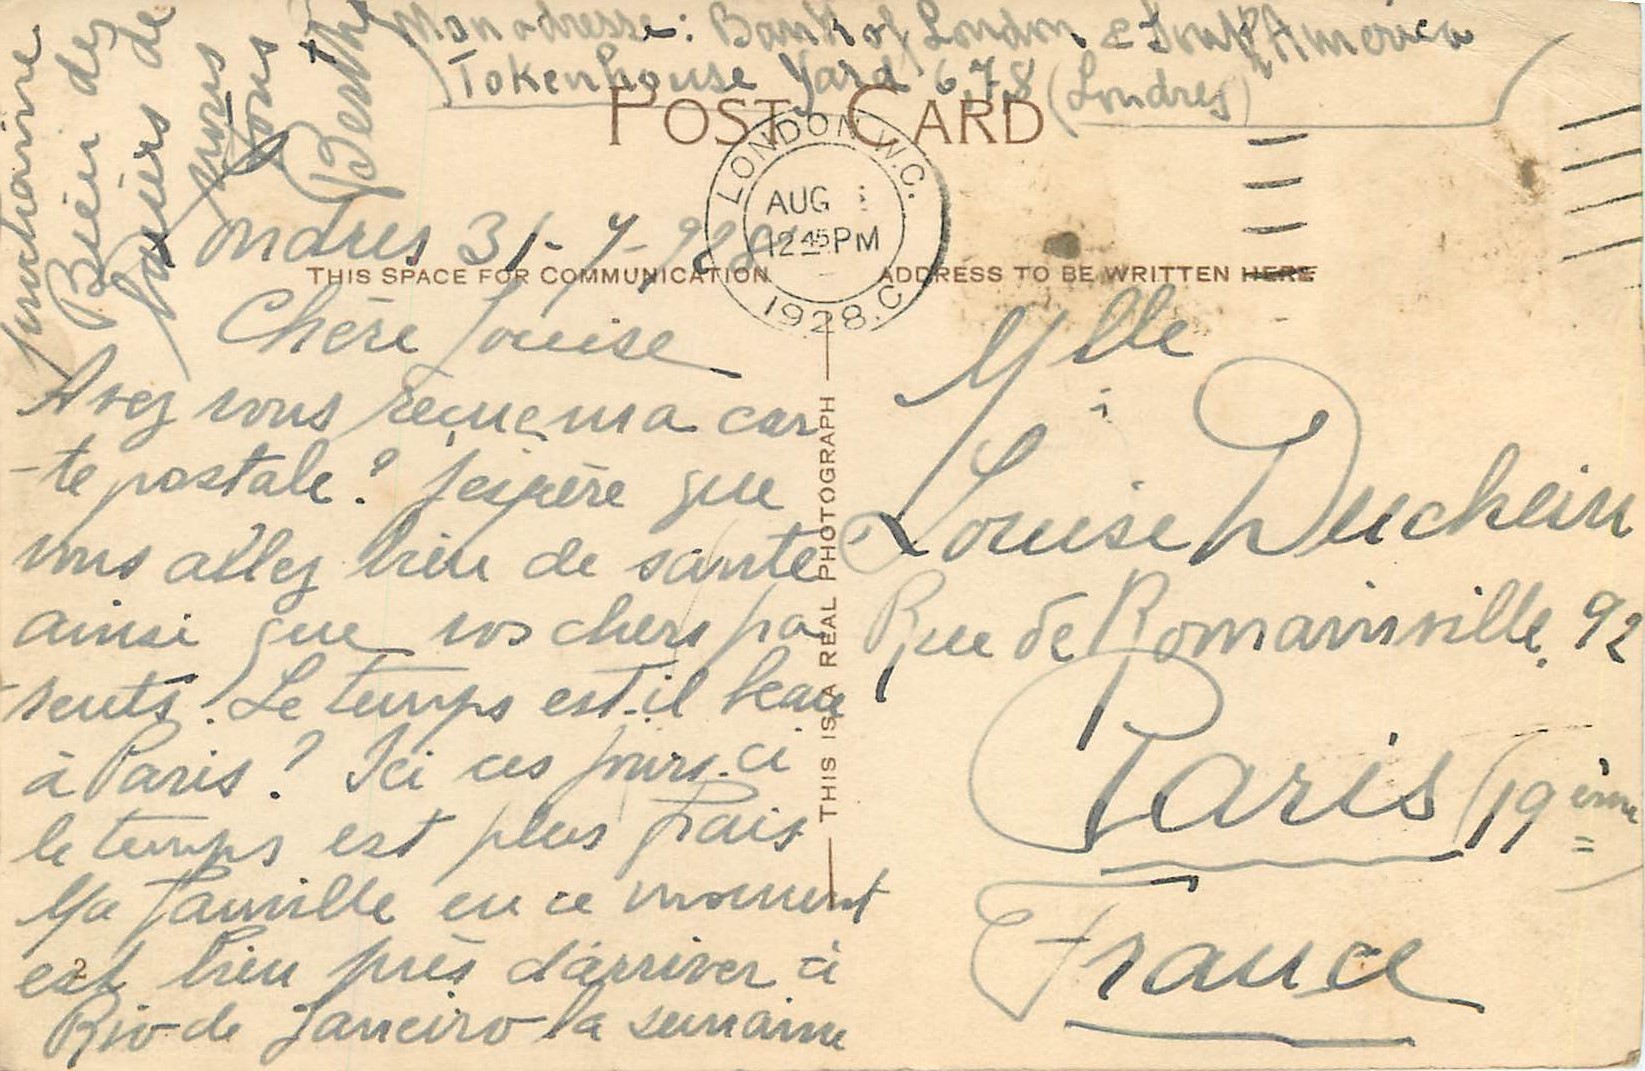 Mon adresse: Bank of London & South America
Tokenhouse Yard 6.7.8 (Londres)
POST CARD
LONDON.W.C.
AUG
12 45 PM
1928.C
THIS SPACE FOR COMMUNICATION
ADDRESS TO BE WRITTEN HERE
Londres 31-7-928
Chère Louise
Avez vous reçue ma car
-te postale? J'espère que
vous allez bien de santé
ainsi que vos chers pa
-rents. Le temps est-il beau
à Paris? Ici ces jours-ci
le temps est plus frais
Ma famille en ce moment
est bien près d'arriver à
Rio de Janeiro la semaine
prochaine
Bien des
baisers de
pour
tous
Berthe
2
THIS IS A REAL PHOTOGRAPH
Mlle
Louise Duchein
Rue de Romainville. 92
Paris (19ème
France